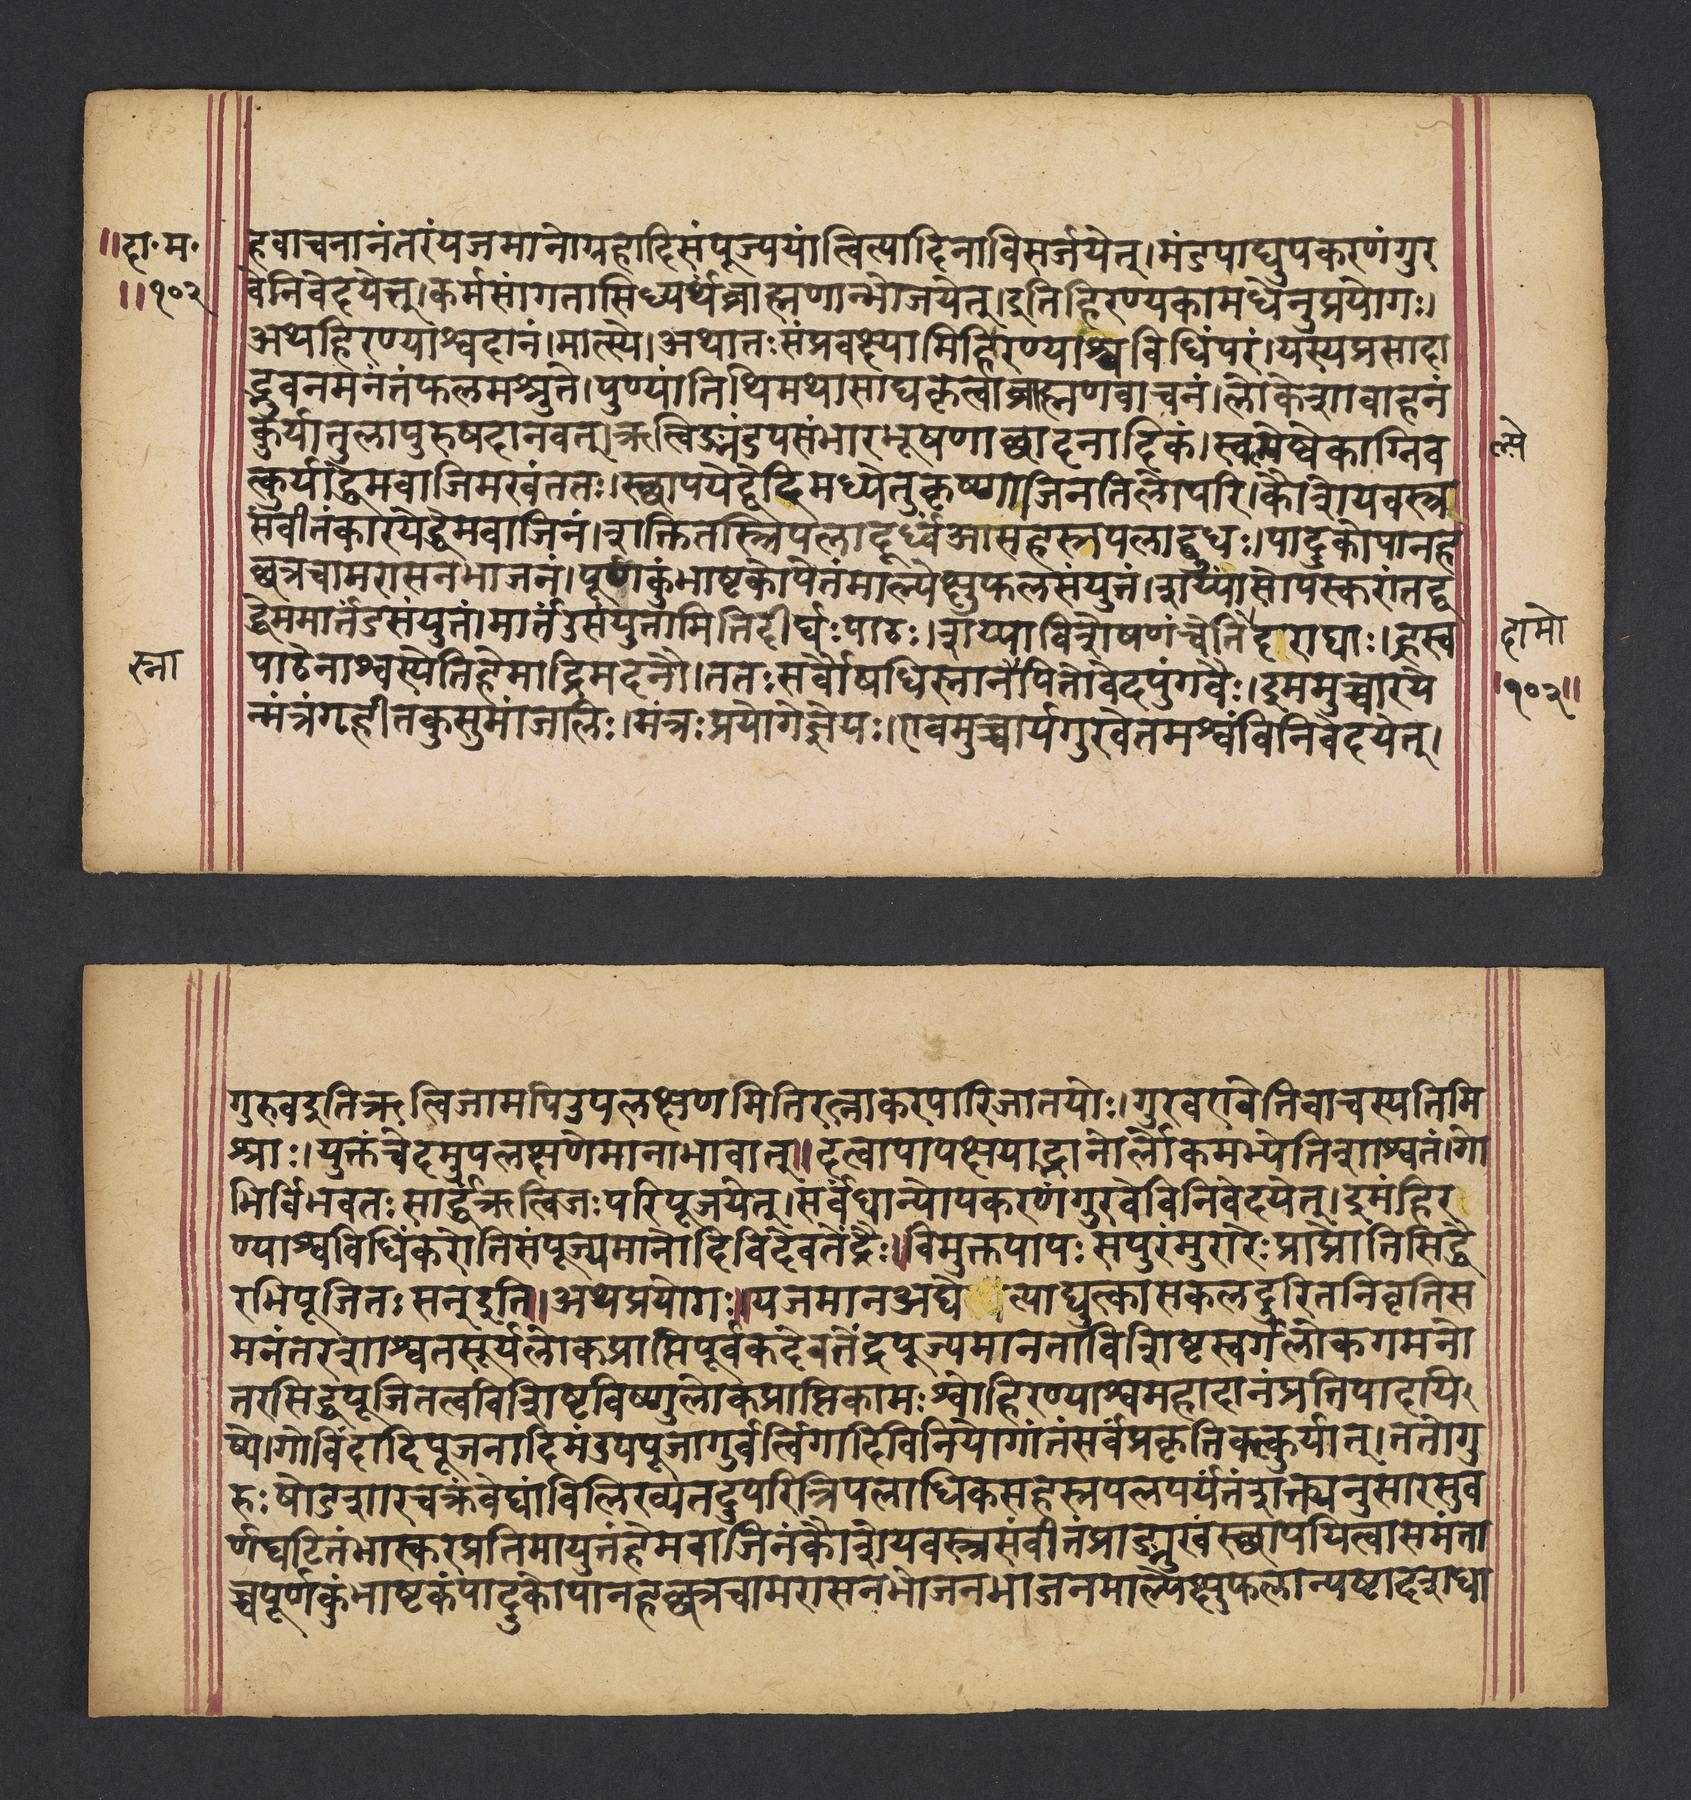 ॥दा॰म॰
॥१०२
हवाचनानंतरंयजमानोग्रहादिसंपूज्ययांत्वित्यादिनाविसर्जयेत्।मंडपाद्युपकरणंगुर
वेनिवेदयेत्तु।कर्मसांगतासिध्यर्थंब्राह्मणान्भोजयेत्।इतिहिरण्यकामधेनुप्रयोगः।
अथहिरण्याश्वदानं।मात्स्ये।अथातःसंप्रवक्ष्यामिहिरण्याश्वविधिंपरं।यस्यप्रसादा
द्भुवनमनंतंफलमश्नुते।पुण्यांतिथिमथासाद्यकृत्वाब्राह्मणवाचनं।लोकेशावाहनं
कुर्यात्तुलापुरुषदानवत्।ऋत्विङ्मंडपसंभारभूषणाच्छादनादिकं।स्वल्पेष्वेकाग्निव
त्कुर्याद्धेमवाजिमखंततः।स्थापयेद्वेदिमध्येतुकृष्णाजिनतिलोपरि।कौशेयवस्त्र
संवीतंकारयेद्धेमवाजिनं।शक्तितस्त्रिपलादूर्ध्वंआसहस्रपलाद्बुधः।पादुकोपानह
छत्रचामरासनभाजनं।पूर्णकुंभाष्टकोपेतंमाल्येक्षुफलसंयुतं।शय्यांसोपस्करांतद्व
द्धेममार्तंडसंयुतां।मार्तंडसंयुतामितिदीर्घःपाठः।शय्याविशेषणंचेतिदाराघाः।ह्रस्व
पाठेनाश्वस्येतिहेमाद्रिमदनौ।ततःसर्वौषधिस्नानेपितोवेदपुंगवैः।इममुच्चारये
न्मंत्रंगृहीतकुसुमांजलिः।मंत्रःप्रयोगेज्ञेयः।एवमुच्चार्यगुरवेतमश्वंविनिवेदयेत्।
ल्पे
स्ना
दामो
॥१०२॥
गुरुवइतिऋत्विजामपिउपलक्षणमितिरत्नाकरपारिजातयोः।गुरवएवेतिवाचस्पतिमि
श्राः।युक्तंचेदमुपलक्षणेमानाभावात्॥दत्वापापक्षयाद्भानोर्लोकमभ्येतिशाश्वतं।गो
भिर्विभवतःसार्द्धंऋत्विजःपरिपूजयेत्।सर्वधान्योपकरणंगुरवेविनिवेदयेत्।इमंहिर
ण्याश्वविधिंकरोतिसंपूज्यमानोदिविदेवतेंद्रैः॥विमुक्तपापःसपुरंमुरारेःप्राप्नोतिसिद्धै
रभिपूजितःसन्इति॥अथप्रयोगः॥यजमानअद्ये त्याद्युत्कासकलदुरितनिवृत्तिस
मनंतरशाश्वतसूर्यलोकप्राप्तिपूर्वकदेवतेंद्रपूज्यमानताविशिष्टस्वर्गलोकगमनो
तरसिद्धपूजितत्वविशिष्टविष्णुलोकप्राप्तिकामःश्वोहिरण्याश्वमहादानंप्रतिपादयि
ष्ये।गोविंदादिपूजनादिमंडपपूजागुर्वर्त्विगादिविनियोगांतंसर्वंप्रकृतिवत्कुर्यात्।ततोगु
रुःषोडशारचक्रंवेद्यांविलिख्यतदुपरित्रिपलाधिकसहस्रपलपर्यंतंशक्त्यनुसारसुव
र्णघटितंभास्करप्रतिमायुतंहेमवाजिनंकौशेयवस्त्रसंवीतंप्राङ्मुखंस्थापयित्वासमंता
च्चपूर्णकुंभाष्टकंपादुकोपानहछत्रचामरासनभोजनभाजनमाल्येक्षुफलान्यष्टादशधा